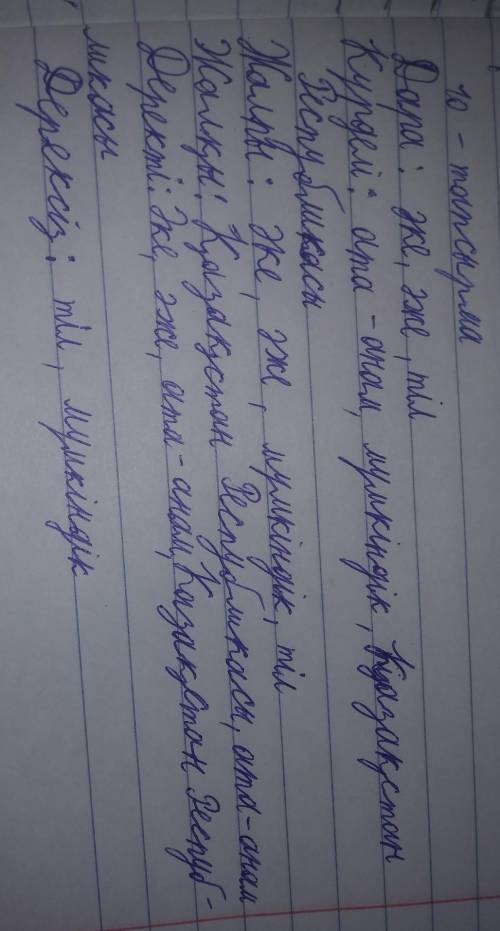 10 - тапсырма
Дара: Әке, әже, тіл
Күрделі: ата-анам, мүмкіндік, Қазақстан
Республикасы
Жалпы: Әке, әже, мүмкіндік, тіл
Жалқы: Қазақстан Республикасы, ата-анам
Деректі: Әке, әже, ата-анам, Қазақстан Респуб-
ликасы
Дерексіз: тіл, мүмкіндік